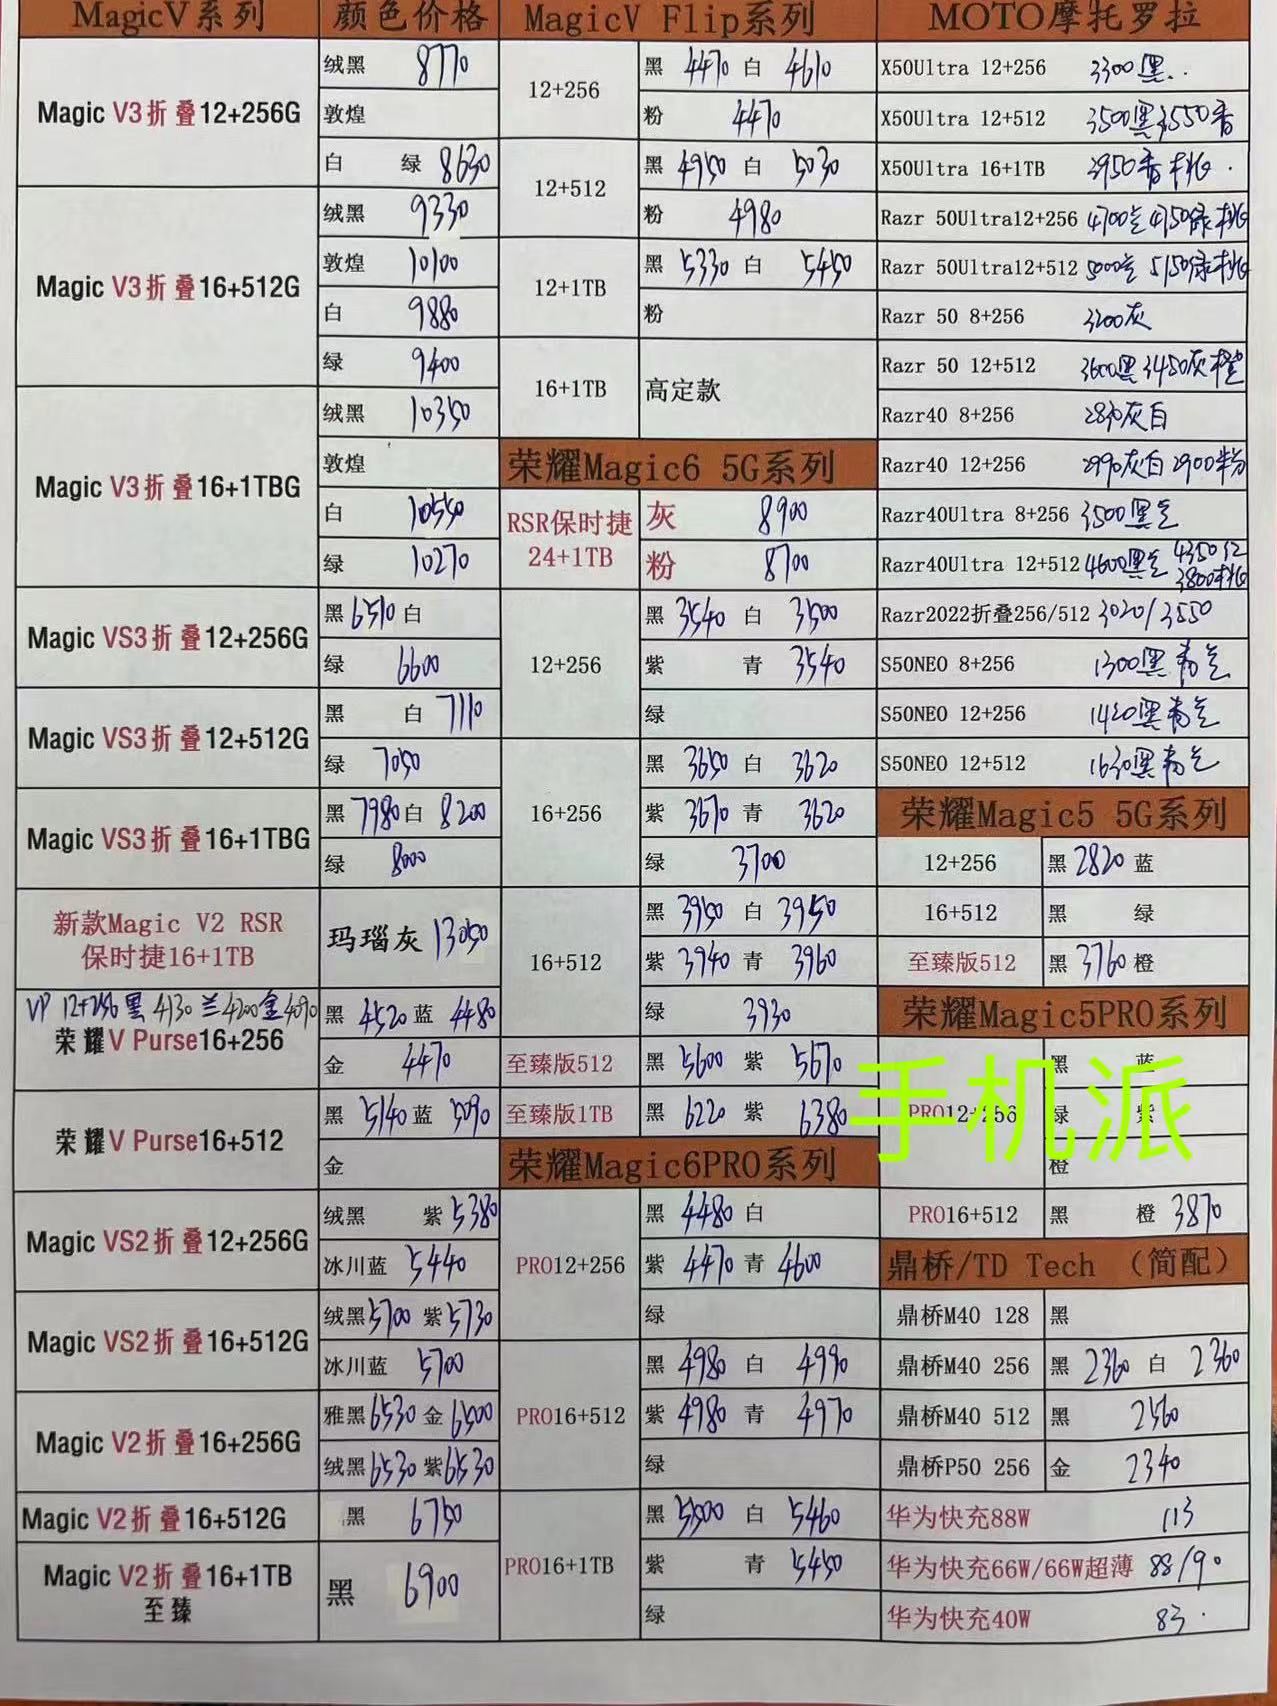 MagicV系列 颜色价格
Magic V3折叠12+256G
绒黑 8770
敦煌
白 绿 8630
Magic V3折叠16+512G
绒黑 9330
敦煌 10100
白 9880
绿 9400
Magic V3折叠16+1TBG
绒黑 10350
敦煌
白 10550
绿 10270
Magic VS3折叠12+256G
黑 6510 白
绿 6600
Magic VS3折叠12+512G
黑 白 7110
绿 7050
Magic VS3折叠16+1TBG
黑 7980 白 8200
绿 8000
新款Magic V2 RSR
保时捷16+1TB
玛瑙灰 13050
VP 12+256 黑 4130 兰4200金4090
荣耀V Purse16+256
黑 4520 蓝 4480
金 4470
荣耀V Purse16+512
黑 5140 蓝 5090
金
Magic VS2折叠12+256G
绒黑 紫 5380
冰川蓝 5440
Magic VS2折叠16+512G
绒黑 5700 紫 5730
冰川蓝 5700
Magic V2折叠16+256G
雅黑 6530 金 6500
绒黑 6530 紫 6530
Magic V2折叠16+512G
黑 6750
Magic V2折叠16+1TB
至臻
黑 6900
MagicV Flip系列
12+256
黑 4470 白 4610
粉 4470
12+512
黑 4950 白 5030
粉 4980
12+1TB
黑 5330 白 5450
粉
16+1TB
高定款
荣耀Magic6 5G系列
RSR保时捷
24+1TB
灰 8900
粉 8700
12+256
黑 3540 白 3500
紫 青 3540
绿
16+256
黑 3650 白 3620
紫 3670 青 3620
绿 3700
16+512
黑 3950 白 3950
紫 3940 青 3960
绿 3930
至臻版512 黑 5600 紫 5670
至臻版1TB 黑 6220 紫 6380
荣耀Magic6PRO系列
PRO12+256
黑 4480 白
紫 4470 青 4600
绿
PRO16+512
黑 4980 白 4990
紫 4980 青 4970
绿
PRO16+1TB
黑 5500 白 5460
紫 青 5450
绿
MOTO摩托罗拉
X50Ultra 12+256 3300黑
X50Ultra 12+512 3500黑3550香
X50Ultra 16+1TB 3950香 桃
Razr 50Ultra12+256 4700兰 4750绿 桃
Razr 50Ultra12+512 5000兰 5150绿 桃
Razr 50 8+256 3200灰
Razr 50 12+512 3600黑 3450灰橙
Razr40 8+256 灰白
Razr40 12+256 2990灰白 2900粉
Razr40Ultra 8+256 3500黑兰
Razr40Ultra 12+512 4600黑兰 4350红
3800桃
Razr2022折叠256/512 3020/3550
S50NEO 8+256 1300黑 青 兰
S50NEO 12+256 1420黑青兰
S50NEO 12+512 1630黑青兰
荣耀Magic5 5G系列
12+256 黑 2820 蓝
16+512 黑 绿
至臻版512 黑 3760 橙
荣耀Magic5PRO系列
手机派
PRO12+256
黑 蓝
绿 紫
橙
PRO16+512 黑 橙 3870
鼎桥/TD Tech （简配）
鼎桥M40 128 黑
鼎桥M40 256 黑 2360 白 2360
鼎桥M40 512 黑 2560
鼎桥P50 256 金 2340
华为快充88W 113
华为快充66W/66W超薄 88/90
华为快充40W 83